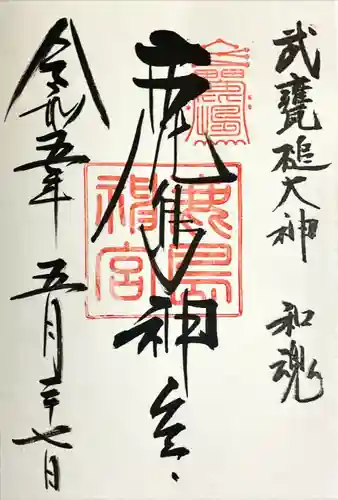 武甕槌大神 和魂
鹿島神宮
鹿島神宮
令和五年 五月二十七日